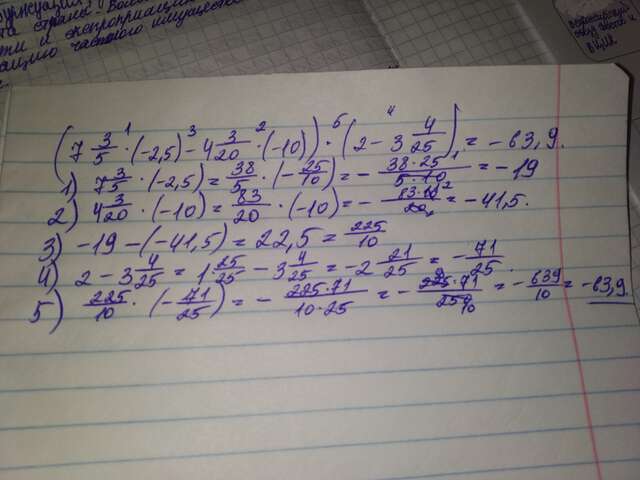 та страны.
ацию частного имущества
(7 3/5 · (-2,5) - 4 3/20 · (-10)) · (2 - 3 4/25) = -63,9.
1) 7 3/5 · (-2,5) = 38/5 · (-25/10) = - 38·25/5·10 = -19
2) 4 3/20 · (-10) = 83/20 · (-10) = - 83·10/20 = -41,5.
3) -19 - (-41,5) = 22,5 = 225/10
4) 2 - 3 4/25 = 1 25/25 - 3 4/25 = -2 21/25 = - 71/25.
5) 225/10 · (- 71/25) = - 225·71/10·25 = - 225·71/250 = - 639/10 = -63,9